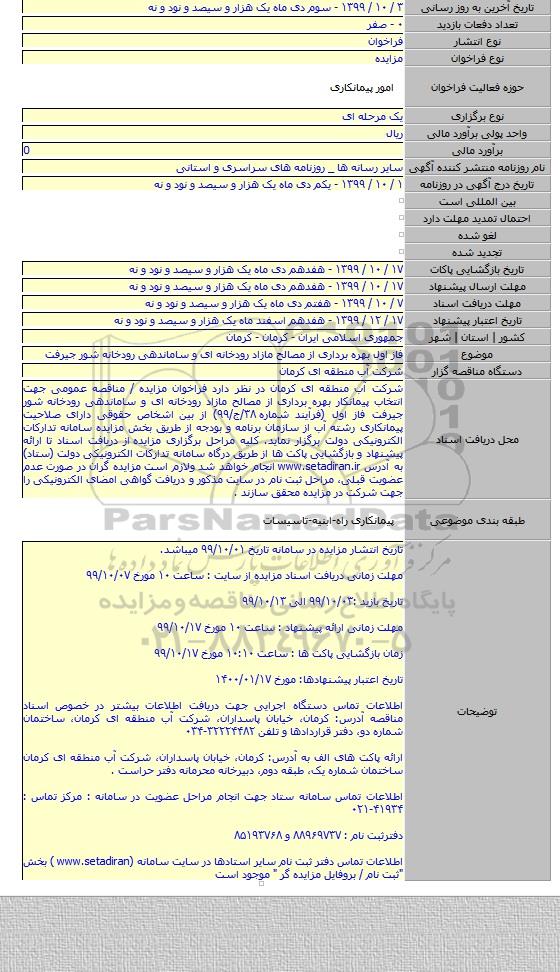 تاریخ آخرین به روز رسانی ۳ / ۱۰ / ۱۳۹۹ - سوم دی ماه یک هزار و سیصد و نود و نه
تعداد دفعات بازدید ۰ - صفر
نوع انتشار فراخوان
نوع فراخوان مزایده
حوزه فعالیت فراخوان امور پیمانکاری
نوع برگزاری یک مرحله ای
واحد پولی برآورد مالی ریال
برآورد مالی 0
نام روزنامه منتشر کننده آگهی سایر رسانه ها _ روزنامه های سراسری و استانی
تاریخ درج آگهی در روزنامه ۱ / ۱۰ / ۱۳۹۹ - یکم دی ماه یک هزار و سیصد و نود و نه
بین المللی است
احتمال تمدید مهلت دارد
لغو شده
تجدید شده
تاریخ بازگشایی پاکات ۱۷ / ۱۰ / ۱۳۹۹ - هفدهم دی ماه یک هزار و سیصد و نود و نه
مهلت ارسال پیشنهاد ۱۷ / ۱۰ / ۱۳۹۹ - هفدهم دی ماه یک هزار و سیصد و نود و نه
مهلت دریافت اسناد ۷ / ۱۰ / ۱۳۹۹ - هفتم دی ماه یک هزار و سیصد و نود و نه
تاریخ اعتبار پیشنهاد ۱۷ / ۱۲ / ۱۳۹۹ - هفدهم اسفند ماه یک هزار و سیصد و نود و نه
کشور | استان | شهر جمهوری اسلامی ایران - کرمان - کرمان
موضوع فاز اول بهره برداری از مصالح مازاد رودخانه ای و ساماندهی رودخانه شور جیرفت
دستگاه مناقصه گزار شرکت آب منطقه ای کرمان
محل دریافت اسناد
شرکت آب منطقه ای کرمان در نظر دارد فراخوان مزایده / مناقصه عمومی جهت
انتخاب پیمانکار بهره برداری از مصالح مازاد رودخانه ای و ساماندهی رودخانه شور
جیرفت فاز اول (فرآیند شماره ۳۸/ج/۹۹) از بین اشخاص حقوقی دارای صلاحیت
پیمانکاری رشته آب از سازمان برنامه و بودجه از طریق بخش مزایده سامانه تدارکات
الکترونیکی دولت برگزار نماید. کلیه مراحل برگزاری مزایده از دریافت اسناد تا ارائه
پیشنهاد و بازگشایی پاکت ها از طریق درگاه سامانه تدارکات الکترونیکی دولت (ستاد)
به آدرس www.setadiran.ir انجام خواهد شد ولازم است مزایده گران در صورت عدم
عضویت قبلی، مراحل ثبت نام در سایت مذکور و دریافت گواهی امضای الکترونیکی را
جهت شرکت در مزایده محقق سازند .
طبقه بندی موضوعی پیمانکاری راه-ابنیه-تاسیسات
ParsNamadData
مرکز فرآوری اطلاعات پارس نماد داده ها
پایگاه اطلاع رسانی مناقصه و مزایده
۰۲۱-۸۸۳۴۹۶۷۰-۵
توضیحات
تاریخ انتشار مزایده در سامانه تاریخ ۹۹/۱۰/۰۱ میباشد.
مهلت زمانی دریافت اسناد مزایده از سایت : ساعت ۱۰ مورخ ۹۹/۱۰/۰۷
تاریخ بازید :۹۹/۱۰/۰۳ الی ۹۹/۱۰/۱۳
مهلت زمانی ارائه پیشنهاد : ساعت ۱۰ مورخ ۹۹/۱۰/۱۷
زمان بازگشایی پاکت ها : ساعت ۱۰:۱۰ مورخ ۹۹/۱۰/۱۷
تاریخ اعتبار پیشنهادها: مورخ ۱۴۰۰/۰۱/۱۷
اطلاعات تماس دستگاه اجرایی جهت دریافت اطلاعات بیشتر در خصوص اسناد
مناقصه آدرس: کرمان، خیابان پاسداران، شرکت آب منطقه ای کرمان، ساختمان
شماره دو، دفتر قراردادها و تلفن ۳۲۲۲۴۴۸۲-۰۳۴
ارائه پاکت های الف به آدرس: کرمان، خیابان پاسداران، شرکت آب منطقه ای کرمان
ساختمان شماره یک، طبقه دوم، دبیرخانه محرمانه دفتر حراست .
اطلاعات تماس سامانه ستاد جهت انجام مراحل عضویت در سامانه : مرکز تماس :
۰۲۱-۴۱۹۳۴
دفترثبت نام : ۸۸۹۶۹۷۳۷ و ۸۵۱۹۳۷۶۸
اطلاعات تماس دفتر ثبت نام سایر استادها در سایت سامانه (www.setadiran ) بخش
"ثبت نام / بروفایل مزایده گر " موجود است